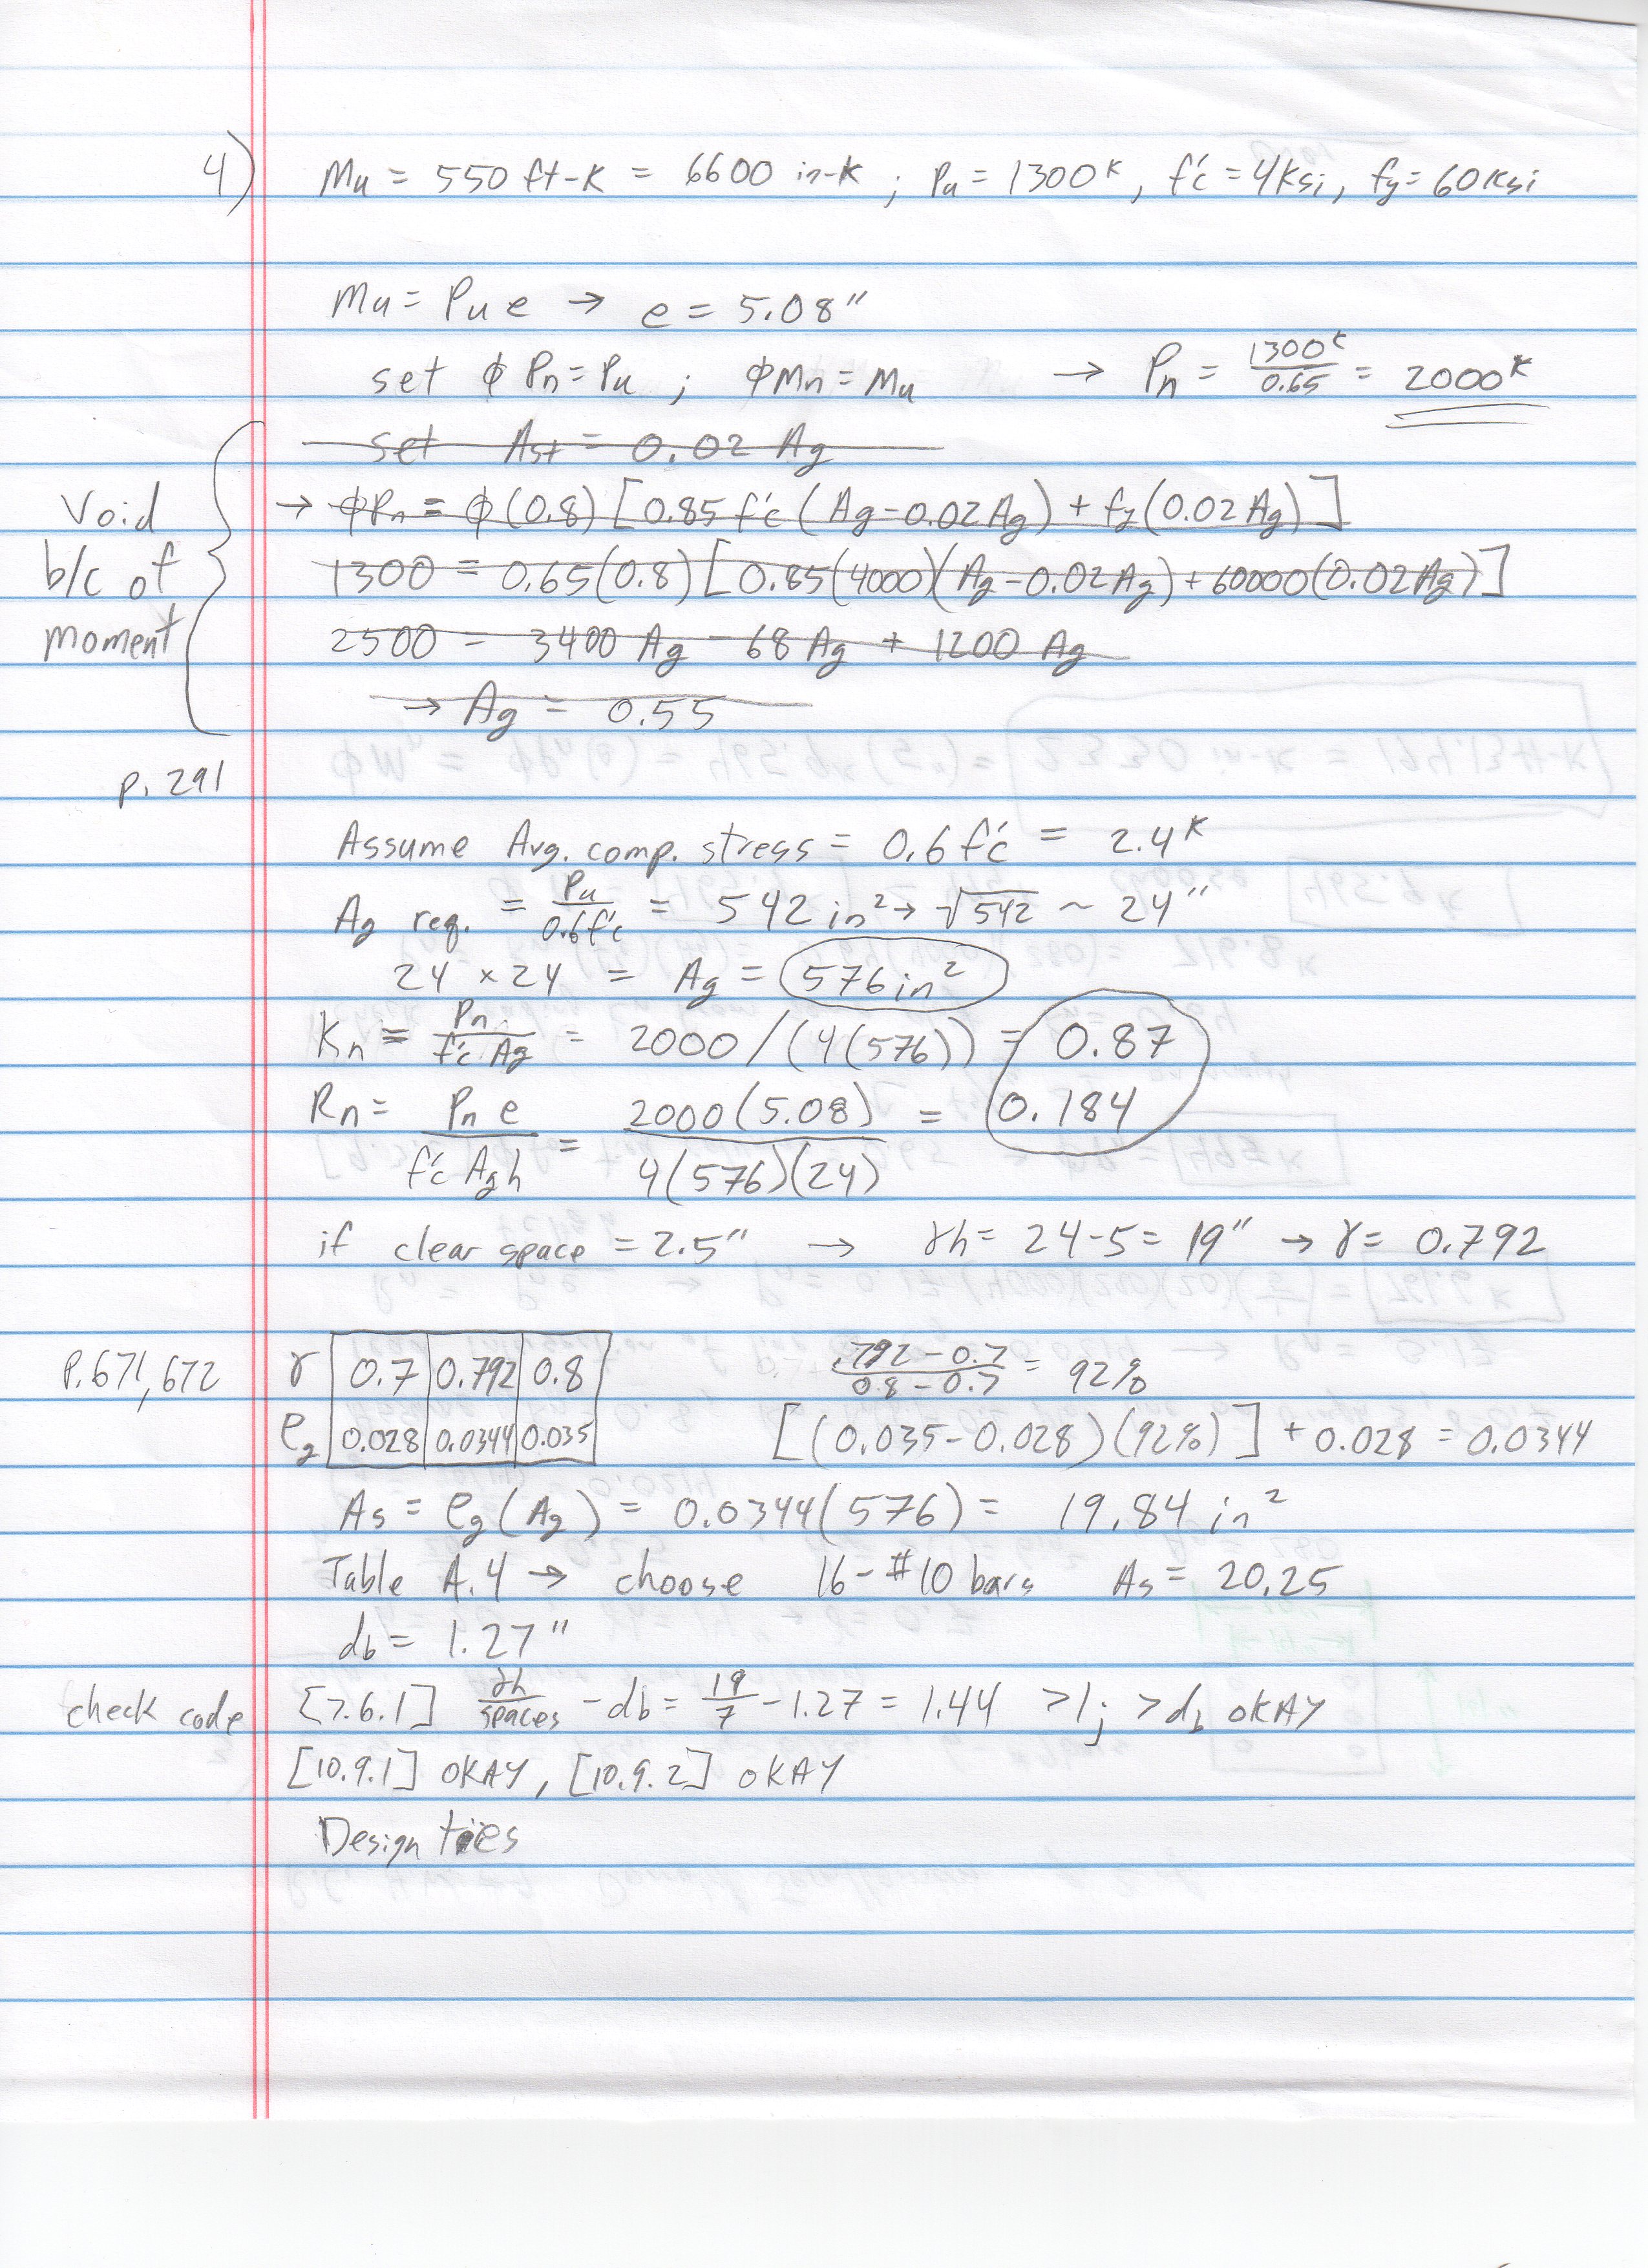 4) Mu = 550 ft-k = 6600 in-k ; Pu = 1300ᵏ, f'c = 4ksi, fy = 60ksi
Mu = Pu e → e = 5.08"
set ϕPn = Pu ; ϕMn = Mu → Pn = 1300ᵏ/0.65 = 2000ᵏ
set Ast = 0.02 Ag
→ ϕPn = ϕ(0.8)[0.85 f'c (Ag-0.02Ag) + fy(0.02Ag)]
Void
b/c of
moment
1300 = 0.65(0.8)[0.85(4000)(Ag-0.02Ag) + 60000(0.02Ag)]
2500 = 3400 Ag - 68 Ag + 1200 Ag
→ Ag = 0.55
p. 291
Assume Avg. comp. stress = 0.6f'c = 2.4ᵏ
Ag req. = Pu/0.6f'c = 542 in² → √542 ~ 24"
24 x 24 = Ag = 576in²
Kn = Pn/f'c Ag = 2000/(4(576)) = 0.87
Rn = Pn e/f'c Ag h = 2000(5.08)/4(576)(24) = 0.184
if clear space = 2.5" → γh = 24-5 = 19" → γ = 0.792
P. 671, 672 γ 0.7 0.792 0.8 .792-0.7/0.8-0.7 = 92%
ρg 0.028 0.0344 0.035 [(0.035-0.028)(92%)] + 0.028 = 0.0344
As = ρg(Ag) = 0.0344(576) = 19.84 in²
Table A.4 → choose 16-#10 bars As = 20.25
db = 1.27"
check code [7.6.1] γh/spaces - db = 19/7 - 1.27 = 1.44 >1; >db OKAY
[10.9.1] OKAY, [10.9.2] OKAY
Design ties